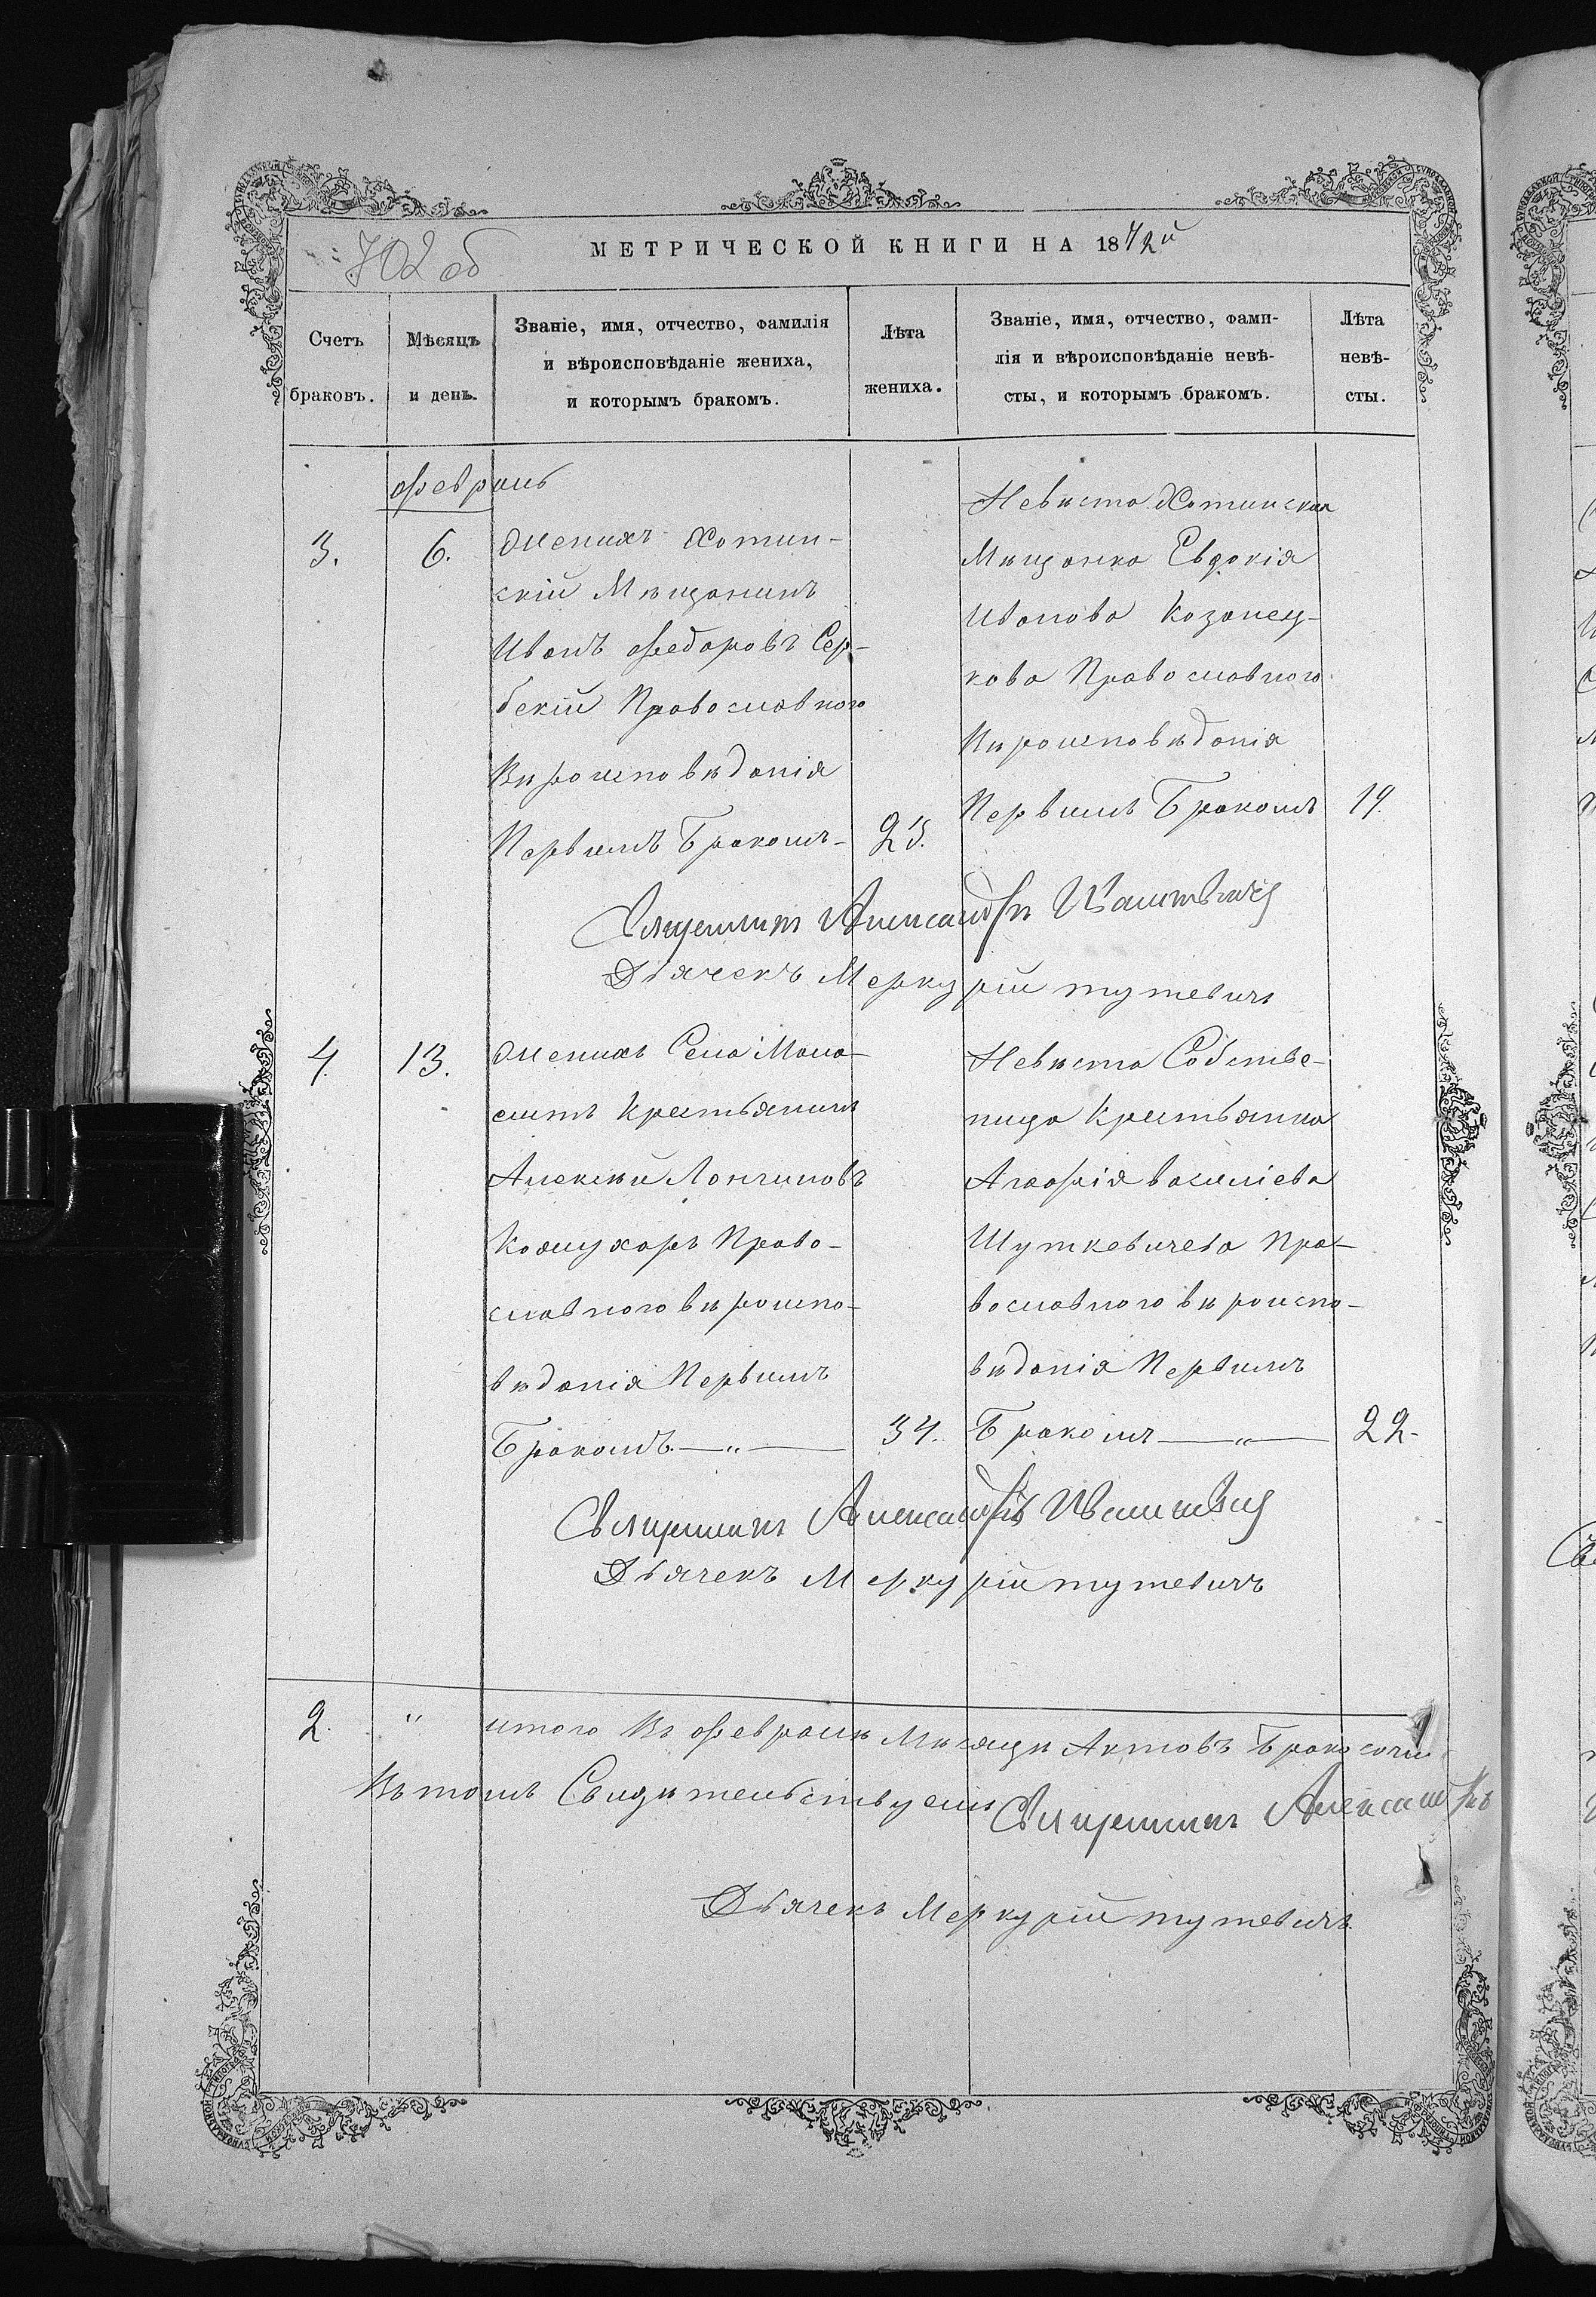 702 об
МЕТРИЧЕСКОЙ КНИГИ НА 1872й
Счетъ браковъ.
Мѣсяцъ и день.
Званіе, имя, отчество, фамилія
и вѣроисповѣданіе жениха,
и которымъ бракомъ.
Лѣта
жениха.
Званіе, имя, отчество, фами-
лія и вѣроисповѣданіе невѣ-
сты, и которымъ бракомъ.
Лѣта
невѣ-
сты.
февраль
3. 6.
Женихъ Хотин-
скій Мѣщанинъ
Иванъ Федоровъ Сер-
бскій Православного
Вѣроисповѣданія
Первымъ Бракомъ-
25.
Невѣста Хотинская
Мѣщанка Евдокія
Иванова Козанец-
кова Православного
Вѣроисповѣданія
Первымъ Бракомъ
19.
Священникъ Александръ
Дьячекъ Меркурій Тутевичъ
4. 13.
Женихъ Села Мало-
Крестьянинъ
Алексѣй Лончиновъ
Кожухарь Право-
славного вѣроиспо-
вѣданія Первымъ
Бракомъ — „ —
34.
Невѣста Собстве-
ница Крестьянка
Агафія Василіева
Шуткевичева Пра-
вославного вѣроиспо-
вѣданія Первымъ
Бракомъ — „ —
22.
Священникъ Александръ
Дьячекъ Меркурій Тутевичъ
2. „ итого Въ февралѣ Мѣсяцѣ Актовъ
Въ томъ Свидѣтельствуемъ Священникъ Александръ
Дьячекъ Меркурій Тутевичъ